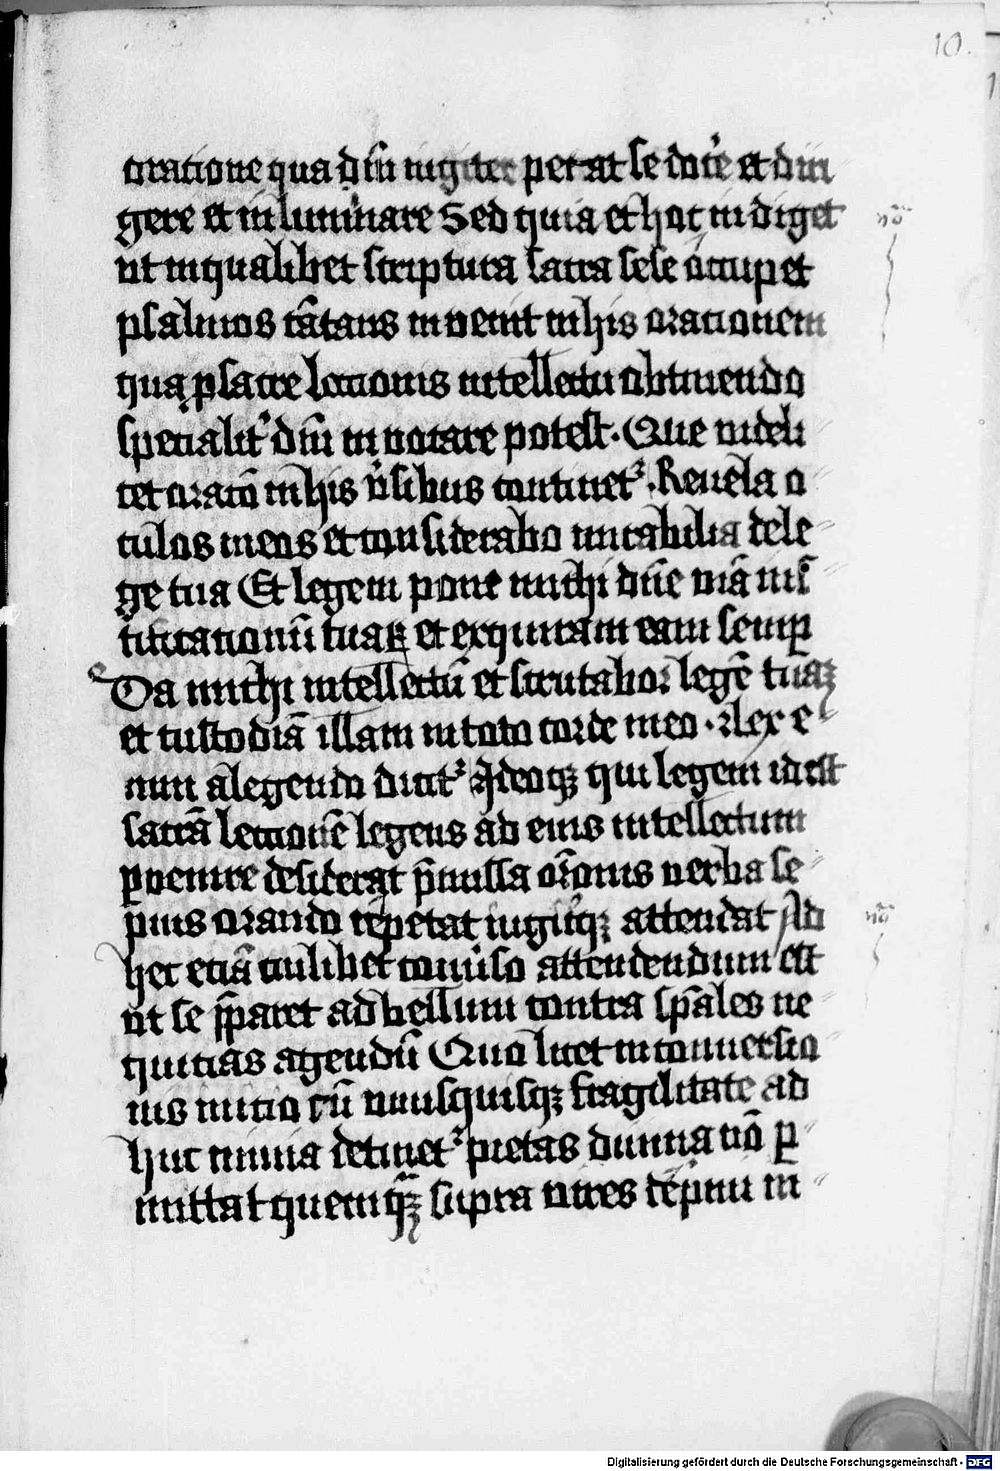 10.
oratione qua dm̄ iugiter petat se docē et diri
gere et in luminare Sed quia et hoc indiget
ut in qualibet scriptura sacra sese occupet
psalmos cātans in venit in his orationem
qua p sacre lectionis intellectu obtinendo
specialit' dm̄ in vocare potest. Que videli
cet oracō in his v'sibus continet'. Revela o
culos meos et considerabo mirabilia de le
ge tua Et legem pone michi dn̄e viā ius
tificationū tuaꝝ et exquiram eam semp
Da michi intellectū et scrutabor legē tuā
et custodiā illam in toto corde meo. Lex e
nim a legendo dicit' Ideoqꝫ qui legem id est
sacrā lectionē legens ad eius intellectum
pvenire desiderat p̄missa orōnis verba se
pius orando repetat iugit'qꝫ attendat Ad
hec eciā cuilibet conv'so attendendum est
ut se p̄paret ad bellum contra sp̄ales ne
quicias agendū Quo licet in conversio
nis inicio cū unusquisqꝫ fragilitate ad
huc nimia detinet' pietas divina nō p
mittat quemqꝫ supra vires
Digitalisierung gefördert durch die Deutsche Forschungsgemeinschaft - DFG